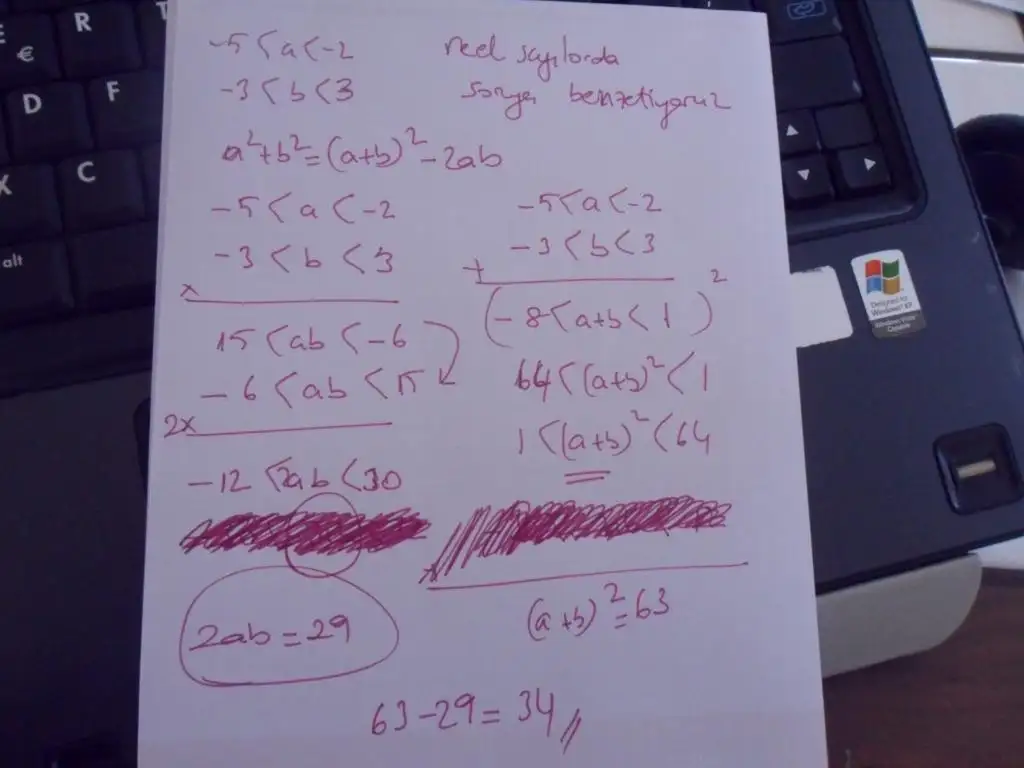 -5 < a < -2 reel sayılarda
-3 < b < 3 soruya benzetiyoruz
a²+b²=(a+b)²-2ab
-5 < a < -2
-3 < b < 3
x
15 < ab < -6
-6 < ab < 15
2x
-12 < 2ab < 30
2ab = 29
-5 < a < -2
-3 < b < 3
+
(-8 < a+b < 1)²
64 < (a+b)² < 1
1 < (a+b)² < 64
(a+b)² = 63
63-29 = 34 //
E
€
R
T
D
F
X
C
alt
Designed for
Windows XP
Windows Vista
Capable